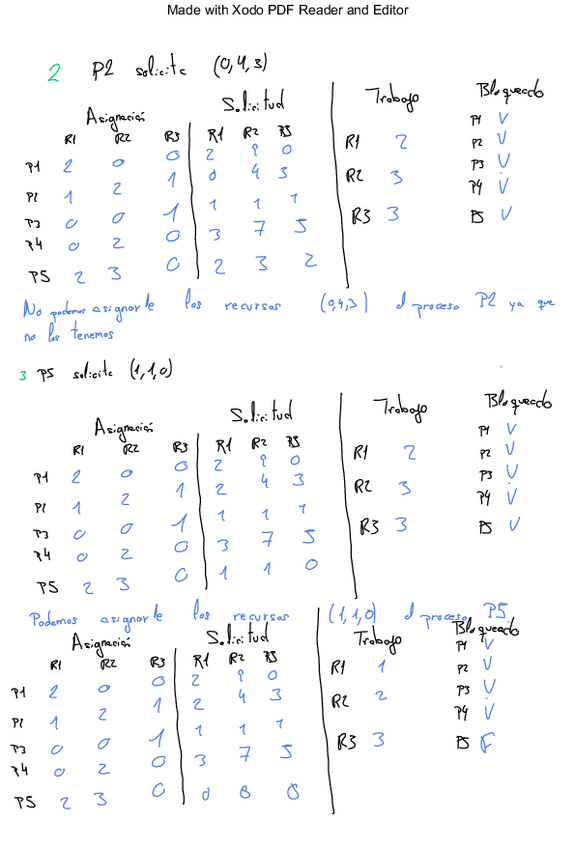 Made with Xodo PDF Reader and Editor
2 P2 solicita (0,4,3)
Asignación Solicitud Trabajo Bloqueado
R1 R2 R3 R1 R2 R3
P1 2 0 0 2 9 0
P2 1 2 1 0 4 3
P3 0 0 1 1 1 1
P4 0 2 0 3 7 5
P5 2 3 0 2 3 2
R1 2
R2 3
R3 3
P1 V
P2 V
P3 V
P4 V
P5 V
No podemos asignarle los recursos (0,4,3) al proceso P2 ya que
no los tenemos
3 P5 solicita (1,1,0)
Asignación Solicitud Trabajo Bloqueado
R1 R2 R3 R1 R2 R3
P1 2 0 0 2 9 0
P2 1 2 1 2 4 3
P3 0 0 1 1 1 1
P4 0 2 0 3 7 5
P5 2 3 0 1 1 0
R1 2
R2 3
R3 3
P1 V
P2 V
P3 V
P4 V
P5 V
Podemos asignarle los recursos (1,1,0) al proceso P5
Asignación Solicitud Trabajo Bloqueado
R1 R2 R3 R1 R2 R3
P1 2 0 0 2 9 0
P2 1 2 1 2 4 3
P3 0 0 1 1 1 1
P4 0 2 0 3 7 5
P5 2 3 0 0 0 0
R1 1
R2 2
R3 3
P1 V
P2 V
P3 V
P4 V
P5 F